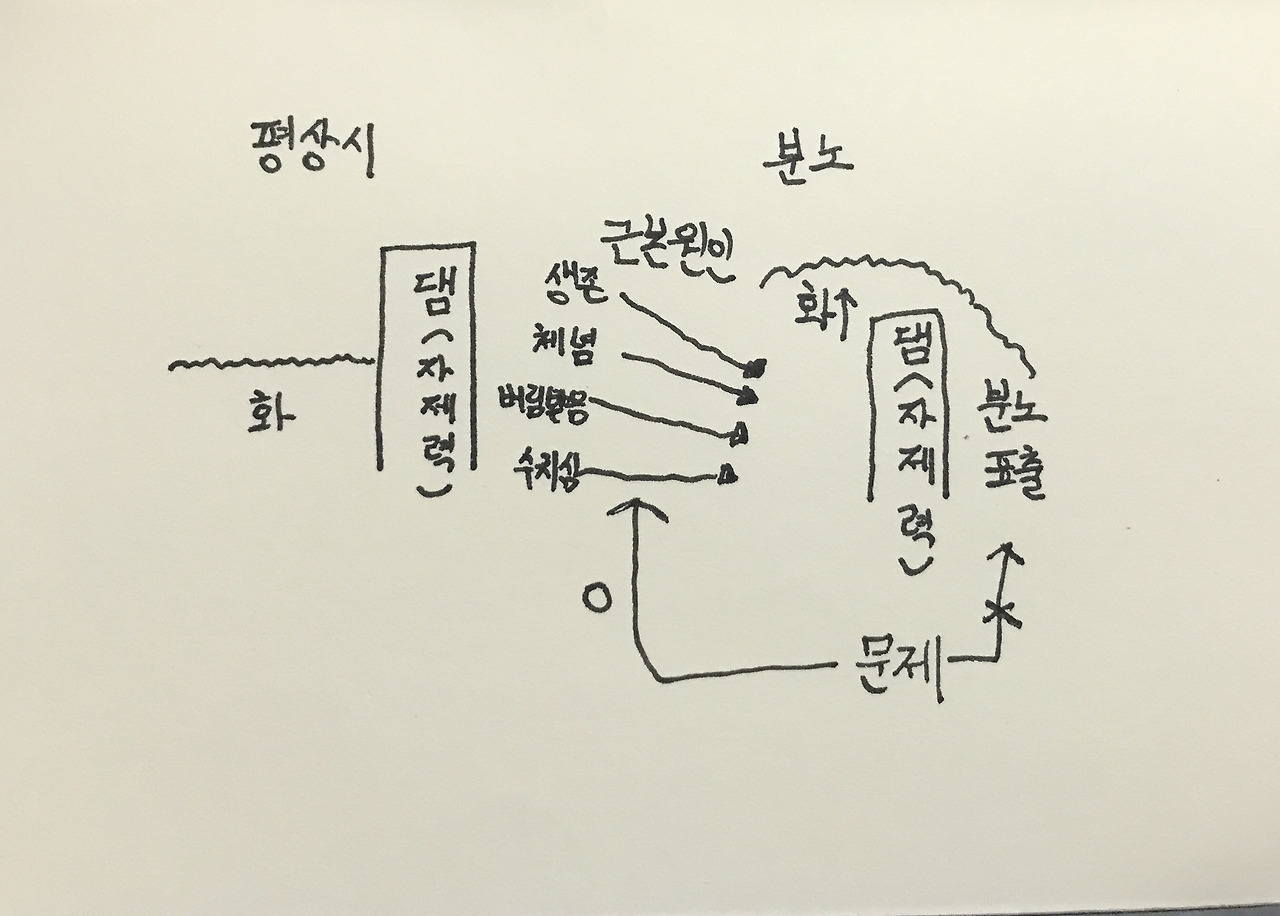 평상시
화
댐(자제력)
분노
근본원인
생존
체념
버림받음
수치심
화↑
댐(자제력)
분노
표출
O
문제
X